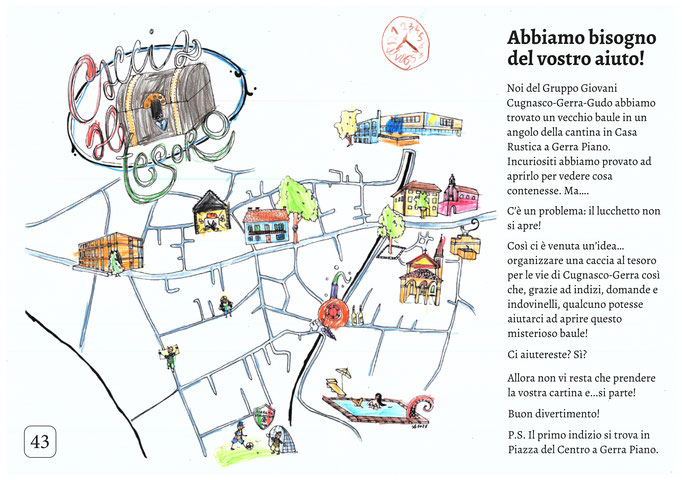 Caccia
al
tesoro
Abbiamo bisogno
del vostro aiuto!
Noi del Gruppo Giovani
Cugnasco-Gerra-Gudo abbiamo
trovato un vecchio baule in un
angolo della cantina in Casa
Rustica a Gerra Piano.
Incuriositi abbiamo provato ad
aprirlo per vedere cosa
contenesse. Ma....
C'è un problema: il lucchetto non
si apre!
Così ci è venuta un'idea...
organizzare una caccia al tesoro
per le vie di Cugnasco-Gerra così
che, grazie ad indizi, domande e
indovinelli, qualcuno potesse
aiutarci ad aprire questo
misterioso baule!
Ci aiutereste? Sì?
Allora non vi resta che prendere
la vostra cartina e...si parte!
Buon divertimento!
P.S. Il primo indizio si trova in
Piazza del Centro a Gerra Piano.
43